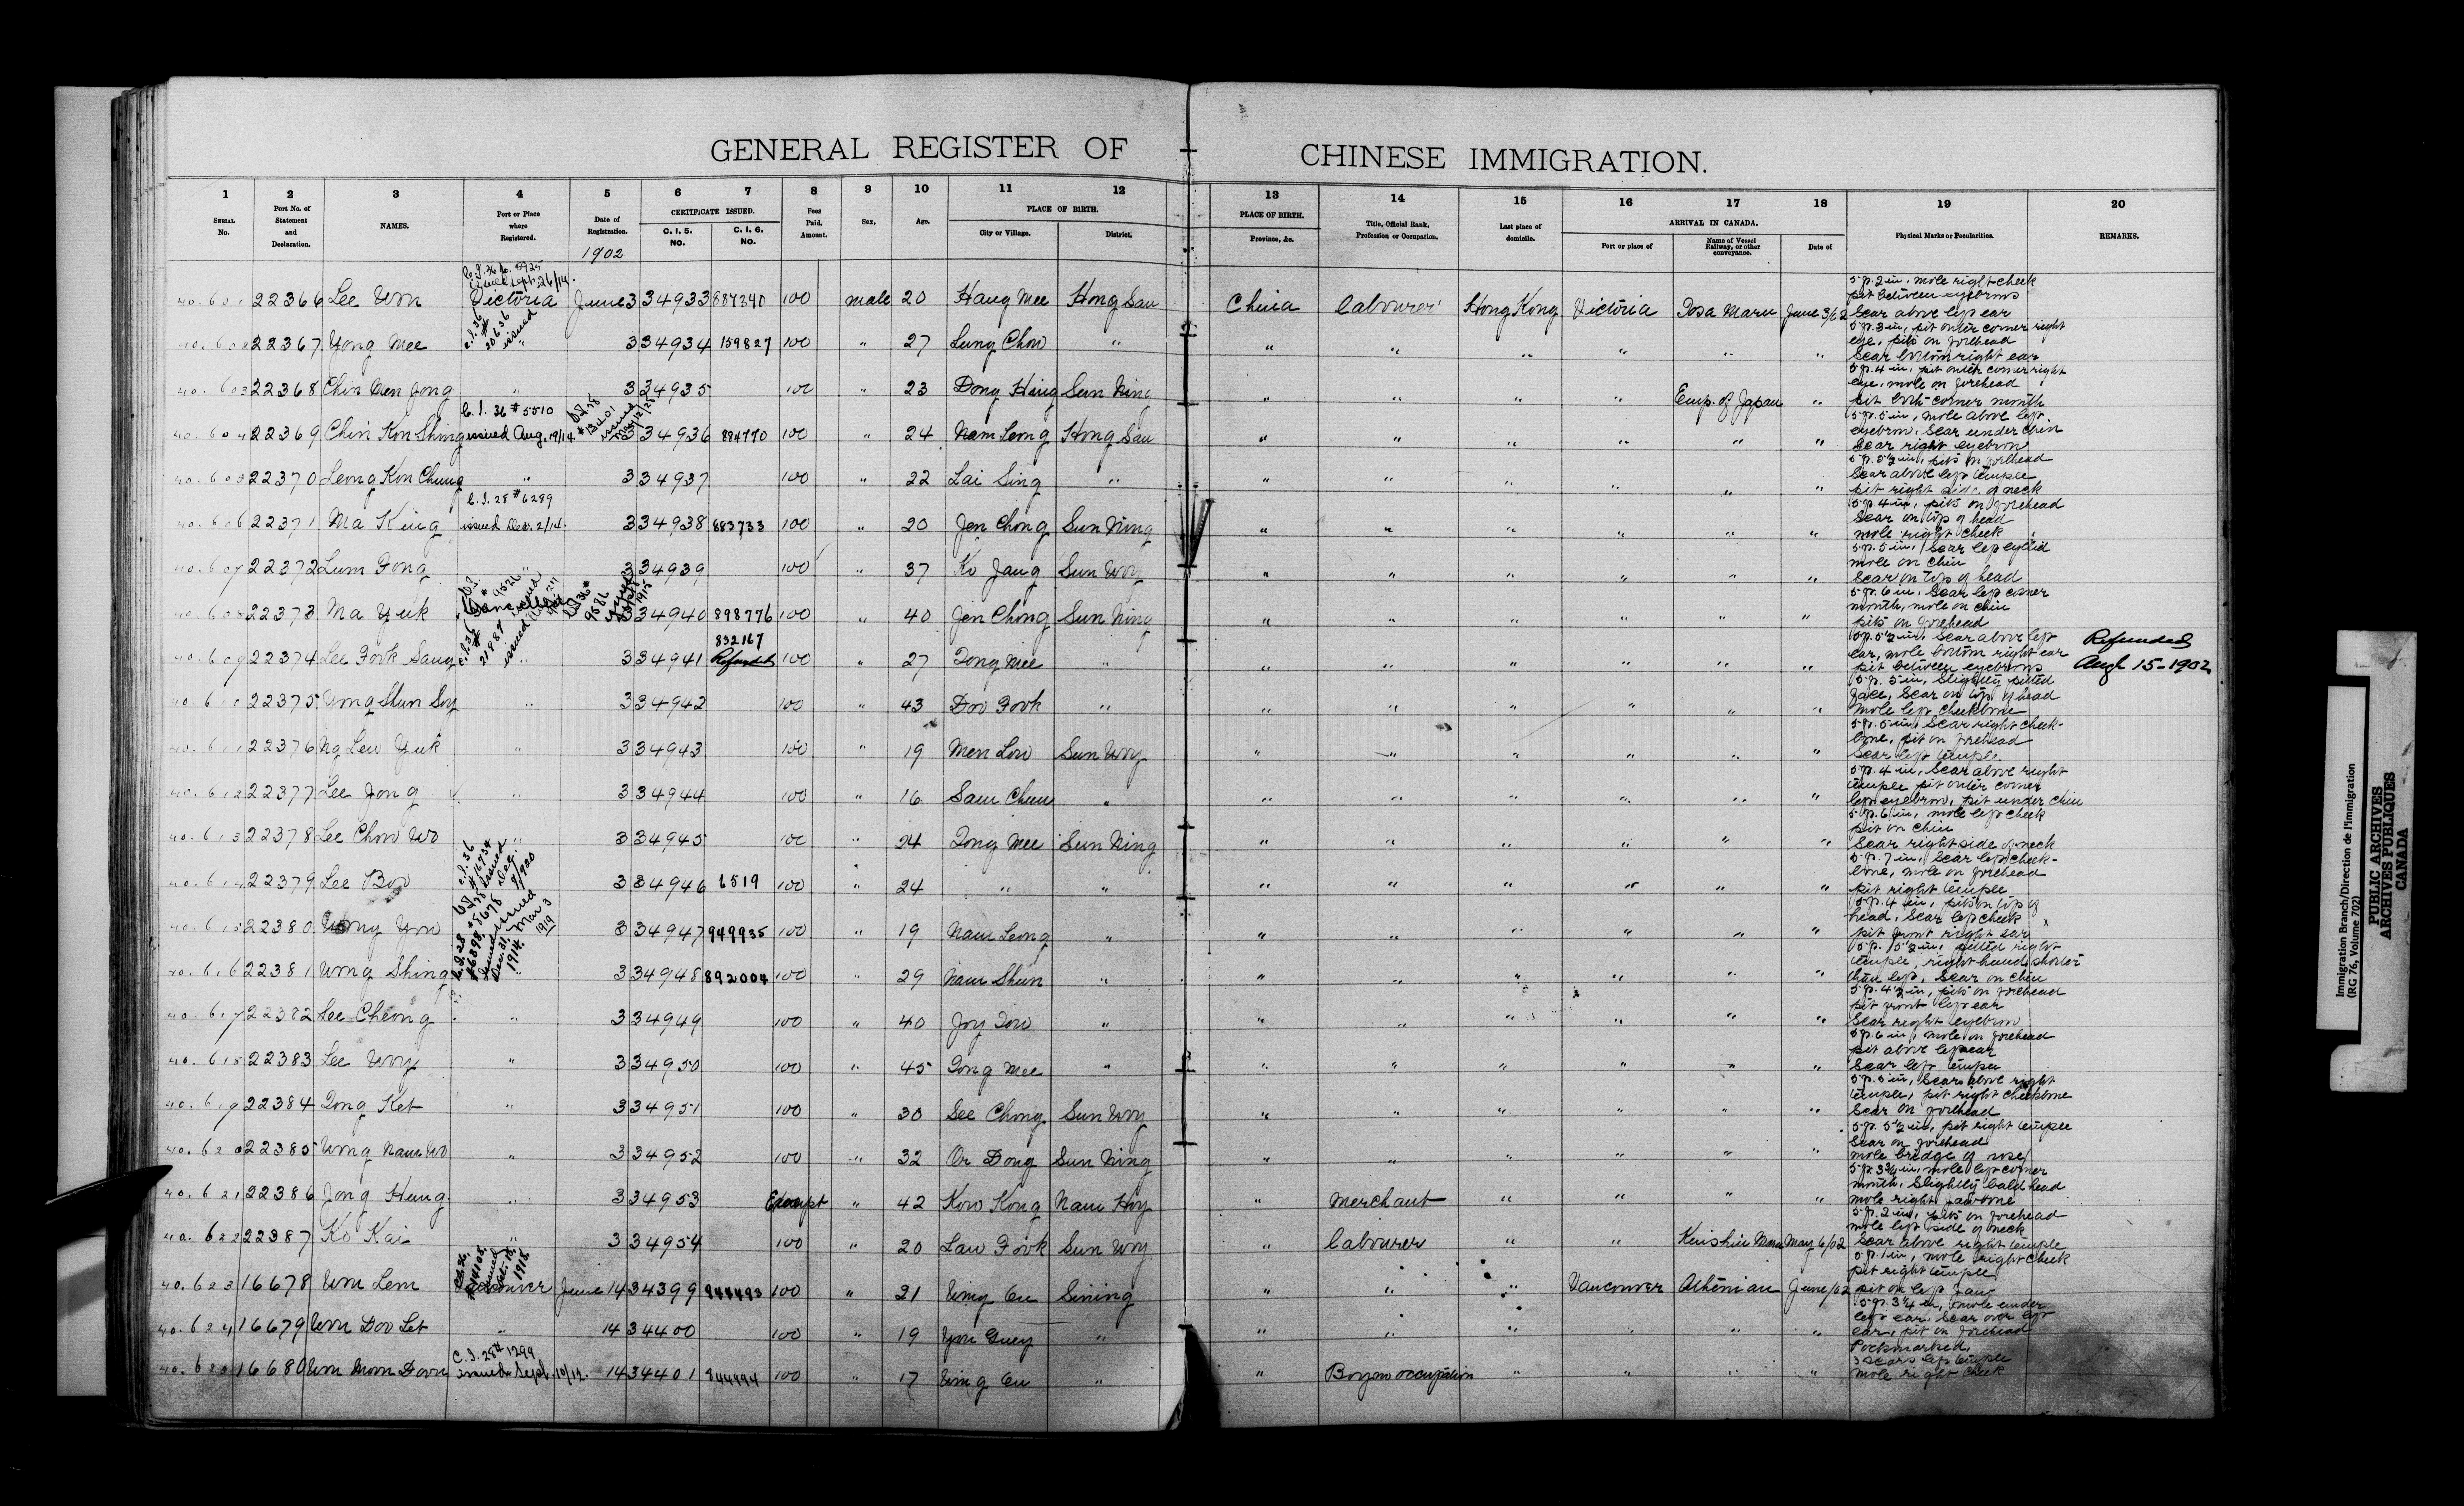 GENERAL REGISTER OF CHINESE IMMIGRATION.
1 2 3 4 5 6 7 8 9 10 11 12 13 14 15 16 17 18 19 20
SERIAL No. Port No. of Statement and Declaration. NAMES. Port or Place where Registered. Date of Registration. CERTIFICATE ISSUED. C. I. 5. NO. C. I. 6. NO. Fees Paid. Amount. Sex. Age. PLACE OF BIRTH. City or Village. District. PLACE OF BIRTH. Province, &c. Title, Official Rank, Profession or Occupation. Last place of domicile. ARRIVAL IN CANADA. Port or place of Name of Vessel Railway, or other conveyance. Date of Physical Marks or Peculiarities. REMARKS.
1902
C.I. 36 No. 8925 issued Sept. 26/14.
40.601 22366 Lee Won Victoria June 3 34933 887340 100 male 20 Hang Mee Hong San China labourer Hong Kong Victoria Tosa Maru June 3/02 5 ft. 2 in, mole right cheek pit between eyebrows scar above left ear
C.I. 36 # 20636 issued
40.602 22367 Yong Mee " 3 34934 159827 100 " 27 Lung Chow " " " " " " " 5 ft. 3 in, pit outer corner right eye, pits on forehead scar bottom right ear
40.603 22368 Chin Wen Jong " 3 34935 100 " 23 Dong Hing Sun Ning " " " " Emp. of Japan " 5 ft. 4 in, pit outer corner right eye, mole on forehead pit both corner mouth
C.I. 36 # 5510 issued Aug. 19/14.
40.604 22369 Chin Kon Shing 3 34936 884770 100 " 24 Nam Leong Hong San " " " " " " 5 ft. 5 in, mole above left eyebrow, scar under chin scar right eyebrow
40.605 22370 Leong Kon Chung " 3 34937 100 " 22 Lai Sing " " " " " " " 5 ft. 5½ in, pits on forehead scar above left temple pit right side of neck
C.I. 28 # 6289 issued Dec. 2/14.
40.606 22371 Ma King 3 34938 883733 100 " 20 Jen Chong Sun Ning " " " " " " 5 ft. 4 in, pits on forehead scar on top of head mole right cheek
40.607 22372 Lum Fong " 3 34939 100 " 37 Ko Jang Sun Woy " " " " " " 5 ft. 5 in, scar left eyelid mole on chin scar on top of head
40.608 22373 Ma Yuk 3 34940 898776 100 " 40 Jen Chong Sun Ning " " " " " " 5 ft. 6 in, scar left corner mouth, mole on chin pits on forehead
C.I. 36 # 21987 issued
40.609 22374 Lee Fook Sang " 3 34941 832167 Refunded 100 " 27 Tong Mee " " " " " " " 5 ft. 5½ in, scar above left ear, mole bottom right ear pit between eyebrows Refunded Augt 15-1902
40.610 22375 Wong Shun Soy " 3 34942 100 " 43 Doo Fook " " " " " " " 5 ft. 5 in, slightly pitted face, scar on top of head mole left cheekbone
40.611 22376 Ng Lew Yuk " 3 34943 100 " 19 Men Low Sun Woy " " " " " " 5 ft. 5 in, scar right cheek-bone, pit on forehead scar left temple.
40.612 22377 Lee Jong " 3 34944 100 " 16 Sam Chun " " " " " " " 5 ft. 4 in, scar above right temple pit outer corner left eyebrow, pit under chin
40.613 22378 Lee Chow Wo " 3 34945 100 " 24 Tong Mee Sun Ning " " " " " " 5 ft. 6 in, mole left cheek pit on chin scar right side of neck
40.614 22379 Lee Bow 3 34946 6519 100 " 24 " " " " " " " " 5 ft. 7 in, scar left cheek-bone, mole on forehead pit right temple
40.615 22380 Wong Yow 3 34947 949935 100 " 19 Nam Leong " " " " " " " 5 ft. 4 in, pits on top of head, scar left cheek pit front right ear
C.I. 28 # 6398, issued Dec. 31, 1914.
40.616 22381 Wong Shing " 3 34948 892004 100 " 29 Nam Shun " " " " " " " 5 ft. 5½ in, pitted right temple, right hand shorter than left, scar on chin
40.617 22382 Lee Cheong " 3 34949 100 " 40 Joy Tow " " " " " " " 5 ft. 4½ in, pits on forehead pit front left ear scar right eyebrow
40.618 22383 Lee Woy " 3 34950 100 " 45 Tong Mee " " " " " " " 5 ft. 6 in, mole on forehead pit above left ear scar left temple
40.619 22384 Tong Ket " 3 34951 100 " 30 See Chong Sun Woy " " " " " " 5 ft. 5 in, scar above right temple, pit right cheekbone scar on forehead
40.620 22385 Wong Nam Wo " 3 34952 100 " 32 On Dong Sun Ning " " " " " " 5 ft. 5½ in, pit right temple scar on forehead mole bridge of nose
40.621 22386 Jong Hung " 3 34953 Exempt " 42 Kow Kong Nam Hoy " merchant " " " " 5 ft. 3¾ in, mole left corner mouth, slightly bald head mole right jawbone
40.622 22387 Ko Kai " 3 34954 100 " 20 Law Fook Sun Woy " labourer " " Kinshiu Maru May 6/02 5 ft. 2 in, pits on forehead mole left side of neck scar above right temple
40.623 16678 Won Lem Vancouver June 14 34399 944493 100 " 21 Wing On Sining " " " Vancouver Athenian June/02 5 ft. 1 in, mole right cheek pit right temple pit on left jaw
40.624 16679 Won Doo Let " 14 34400 100 " 19 Yow Guey " " " " " " " 5 ft. 3¼ in, mole under left ear, scar over left ear, pit on forehead
C.I. 28 # 1299 issued Sept. 10/12.
40.625 16680 Won Mon Down 14 34401 844994 100 " 17 Wing On " " Boy no occupation " " " " Pockmarked, 3 scars left temple mole right cheek
Immigration Branch/Direction de l'immigration
(RG 76, Volume 702)
PUBLIC ARCHIVES
ARCHIVES PUBLIQUES
CANADA